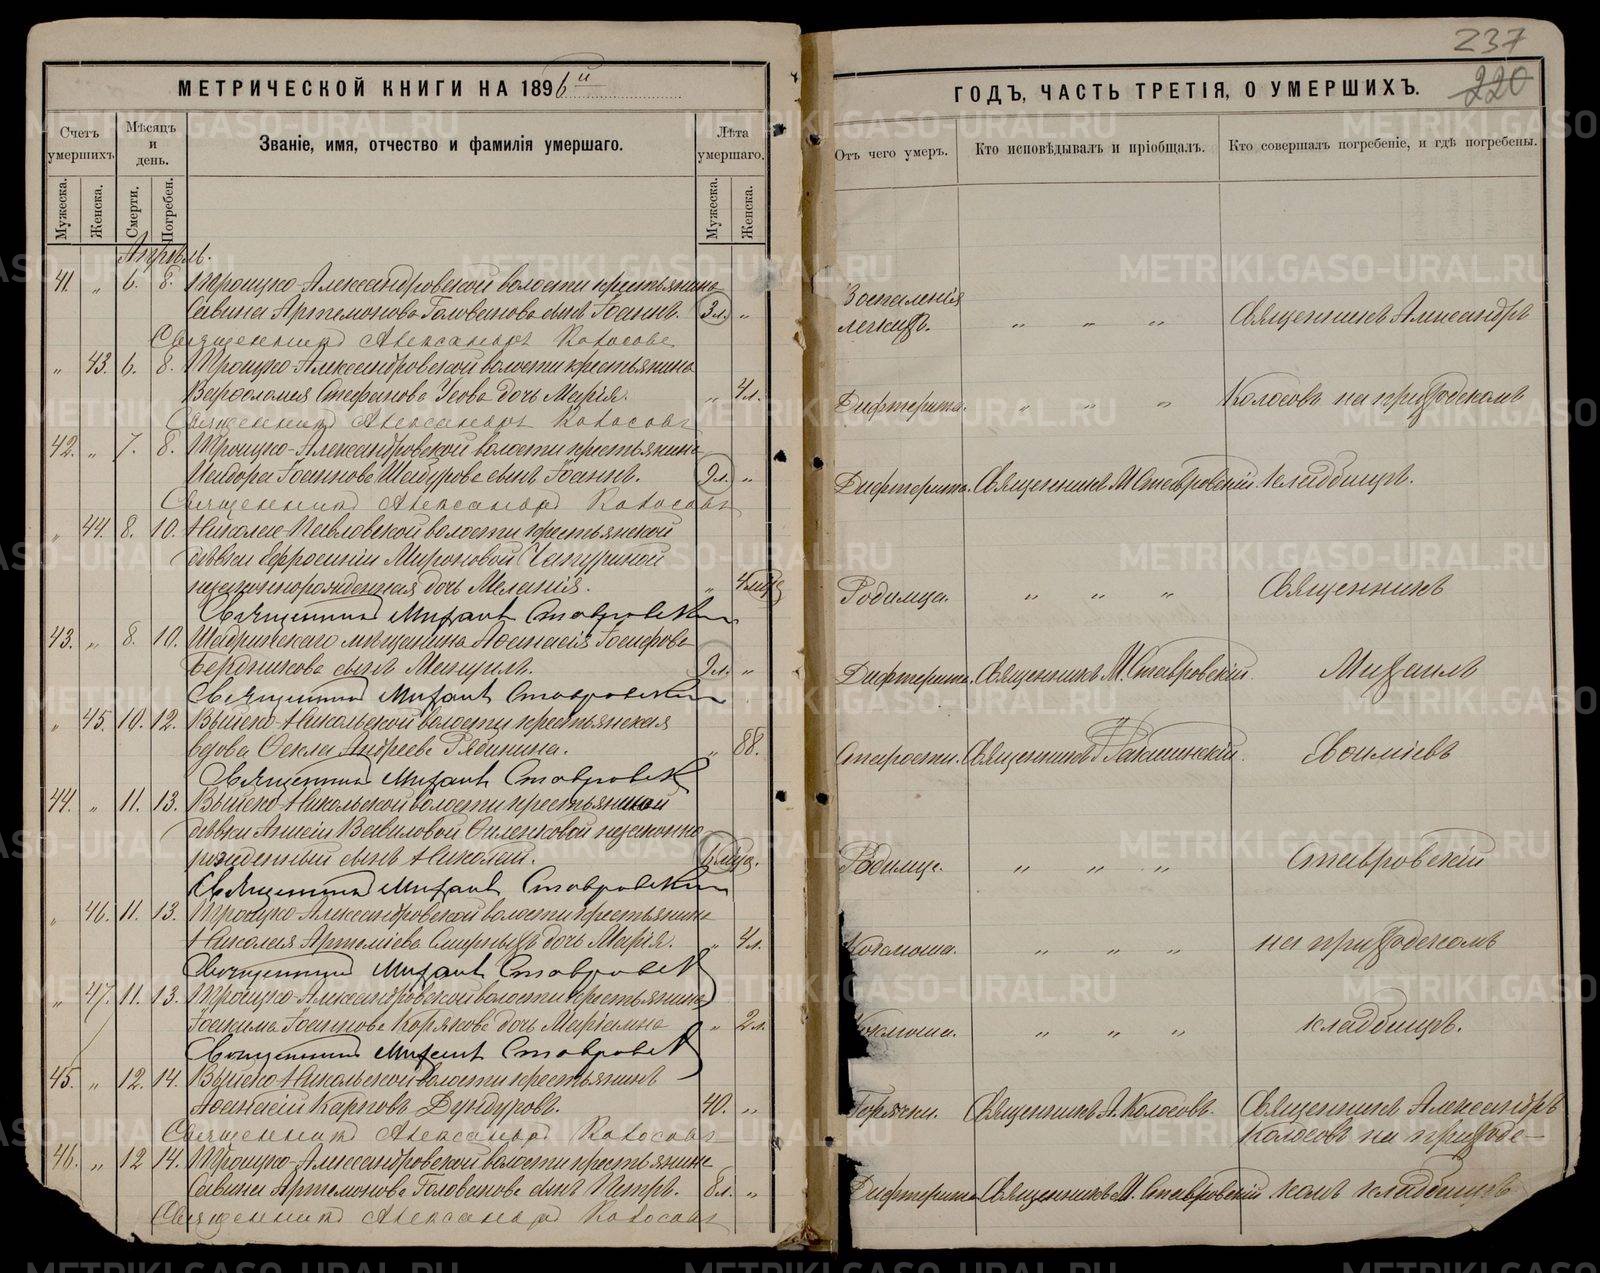 237
220
МЕТРИЧЕСКОЙ КНИГИ НА 1896й
Счетъ умершихъ.
Мѣсяцъ и день.
Званіе, имя, отчество и фамилія умершаго.
Лѣта умершаго.
Мужеска.
Женска.
Смерти.
Погребен.
Мужеска.
Женска.
Апрѣль.
41. „ 6. 8. Троицко-Александровской волости крестьянина
Савина Артемонова Голованова сынъ Іоаннъ. 3 л. „
Священникъ Александръ Колосовъ
„ 43. 6. 8. Троицко-Александровской волости крестьянина
Варѳоломея Стефанова Усова дочь Марія. „ 4 л.
Священникъ Александръ Колосовъ
42. „ 7. 8. Троицко-Александровской волости крестьянина
Исидора Іоаннова Шабурова сынъ Іоаннъ. 2 л. „
Священникъ Александръ Колосовъ
„ 44. 8. 10. Николае-Павловской волости крестьянской
дѣвки Ефросиніи Мироновой
незаконнорожденная дочь Меланія. „ 4 мца
Священникъ Михаилъ Ставровскій
43. „ 8. 10. Шадринскаго мѣщанина Аѳанасія Іосифова
Бердникова сынъ Мануилъ. 2 л. „
Священникъ Михаилъ Ставровскій
„ 45. 10. 12. Выйско-Никольской волости крестьянская
вдова Ѳекла Андреева Рябинина. „ 88.
Священникъ Михаилъ Ставровскій
44. „ 11. 13. Выйско-Никольской волости крестьянской
дѣвки Вавиловой незаконно
рожденный сынъ Николай. мца.
Священникъ Михаилъ Ставровскій
„ 46. 11. 13. Троицко-Александровской волости крестьянина
Николая Артеміева Смирныхъ дочь Марія. „ 4 л.
Священникъ Михаилъ Ставровскій
„ 47. 11. 13. Троицко-Александровской волости крестьянина
Іоакима Іоаннова Корякова дочь Маріамна „ 2 л.
Священникъ Михаилъ Ставровскій
45. „ 12. 14. Выйско-Никольской волости крестьянинъ
Аѳанасій Карповъ Дундуровъ. 40. „
Священникъ Александръ Колосовъ
46. „ 12 14. Троицко-Александровской волости крестьянина
Савина Артемонова Голованова сынъ Петръ. 8 л. „
Священникъ Александръ Колосовъ
ГОДЪ, ЧАСТЬ ТРЕТІЯ, О УМЕРШИХЪ.
Отъ чего умеръ.
Кто исповѣдывалъ и пріобщалъ.
Кто совершалъ погребеніе, и гдѣ погребены.
Воспаленія
легкихъ. „ „ „ Священникъ Александръ
Дифтерита. „ „ „ Колосовъ на приходскомъ
Дифтерита. Священникъ М. Ставровскій кладбищѣ.
Родимца. „ „ „ Священникъ
Дифтерита. Священникъ М. Ставровскій. Михаилъ
Старости. Священникъ
Родимца. „ „ „ Ставровскій
Коклюша. „ „ „ на приходскомъ
Коклюша. „ „ „ кладбищѣ.
Горячки. Священникъ А. Колосовъ. Священникъ Александръ
Колосовъ на приходс-
Дифтерита Священникъ М. Ставровскій комъ кладбищѣ
METRIKI.GASO-URAL.RU